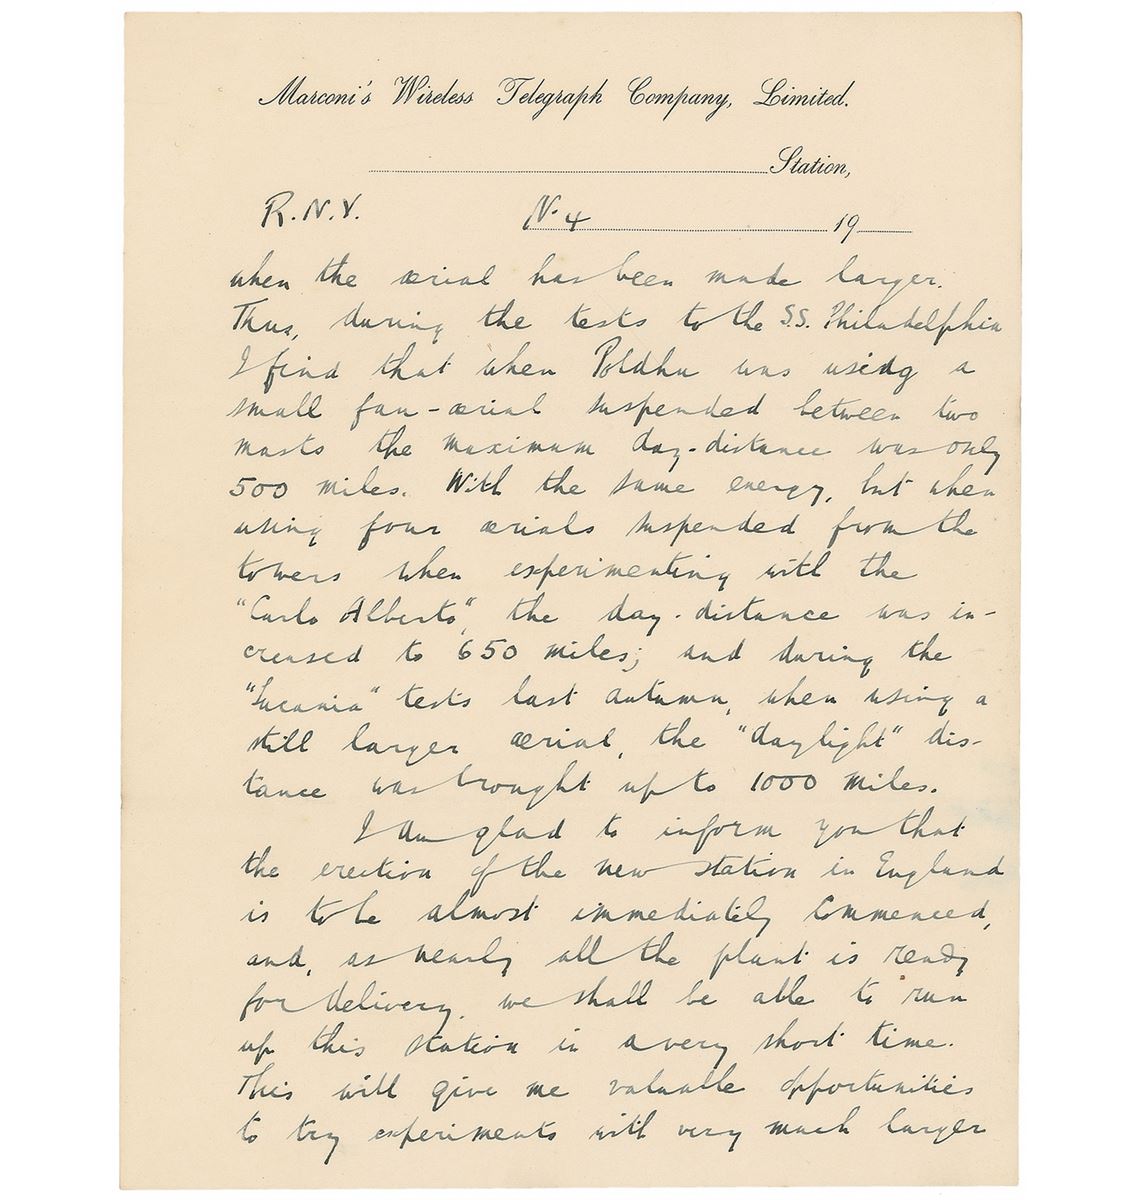 Marconi's Wireless Telegraph Company, Limited.
Station,
R.N.V. No. 4 19
when the ærial has been made larger.
Thus, during the tests to the S.S. Philadelphia
I find that when Poldhu was usidg a
small fan-ærial suspended between two
masts the maximum day-distance was only
500 miles. With the same energy, but when
using four ærials suspended from the
towers when experimenting with the
"Carlo Alberto", the day-distance was in-
creased to 650 miles; and during the
"Lucania" tests last autumn, when using a
still larger ærial, the "daylight" dis-
tance was brought up to 1000 miles.
I am glad to inform you that
the erection of the new station in England
is to be almost immediately commenced,
and, as nearly all the plant is ready
for delivery, we shall be able to run
up this station in a very short time.
This will give me valuable opportunities
to try experiments with very much larger